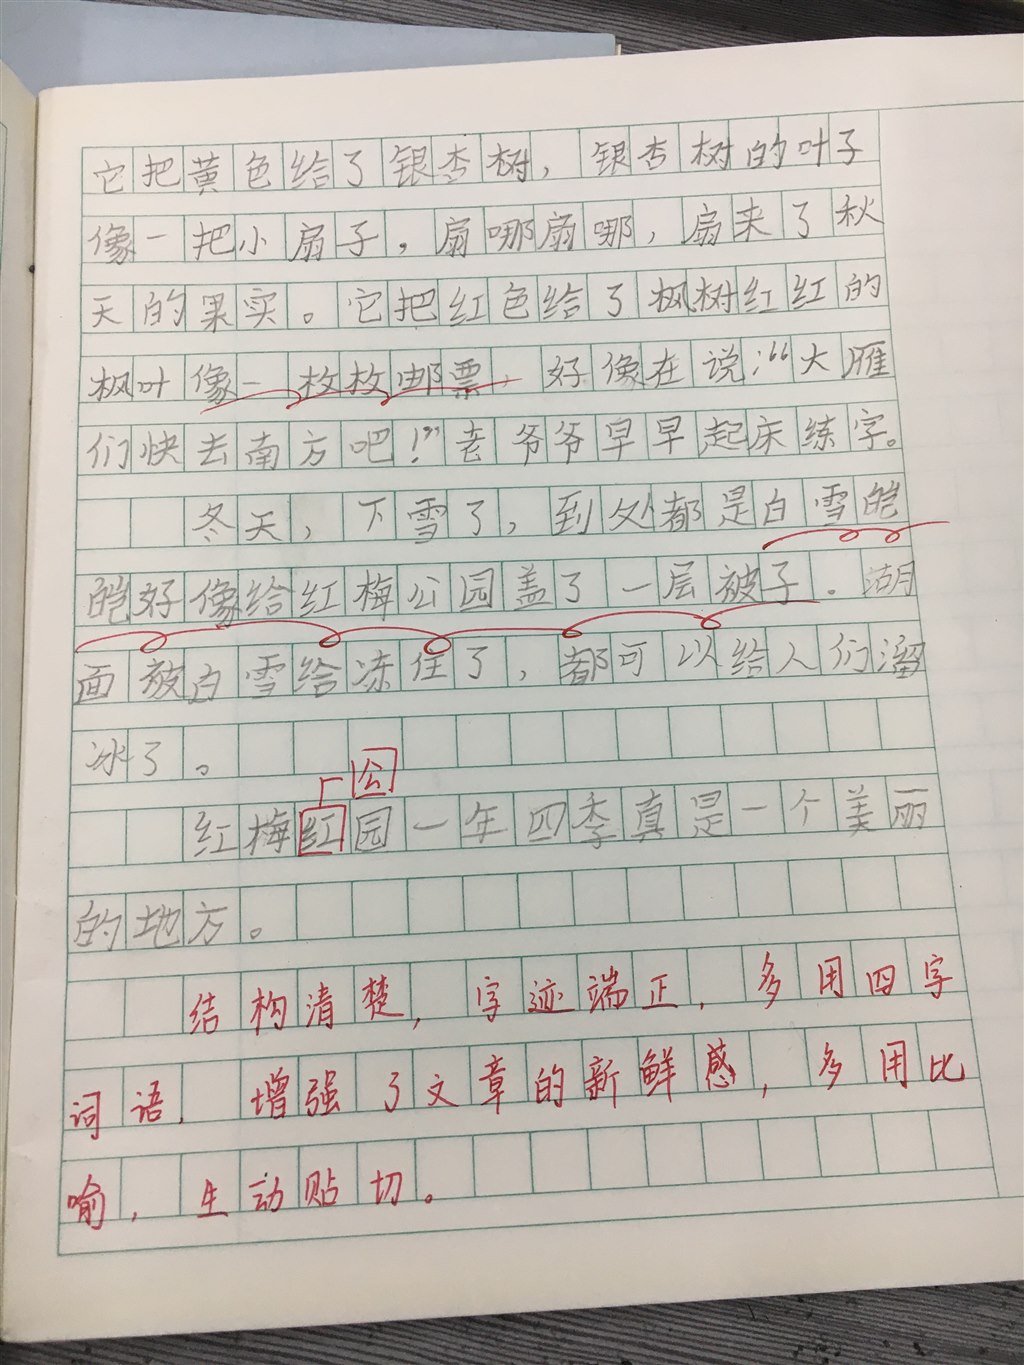 它把黄色给了银杏树，银杏树的叶子
像一把小扇子，扇哪扇哪，扇来了秋
天的果实。它把红色给了枫树红红的
枫叶像一枚枚邮票，好像在说：“大雁
们快去南方吧！”老爷爷早早起床练字。
冬天，下雪了，到处都是白雪皑
皑好像给红梅公园盖了一层被子．湖
面被白雪给冻住了，都可以给人们溜
冰了。
公
红梅红园一年四季真是一个美丽
的地方。
结构清楚，字迹端正，多用四字
词语，增强了文章的新鲜感，多用比
喻，生动贴切。